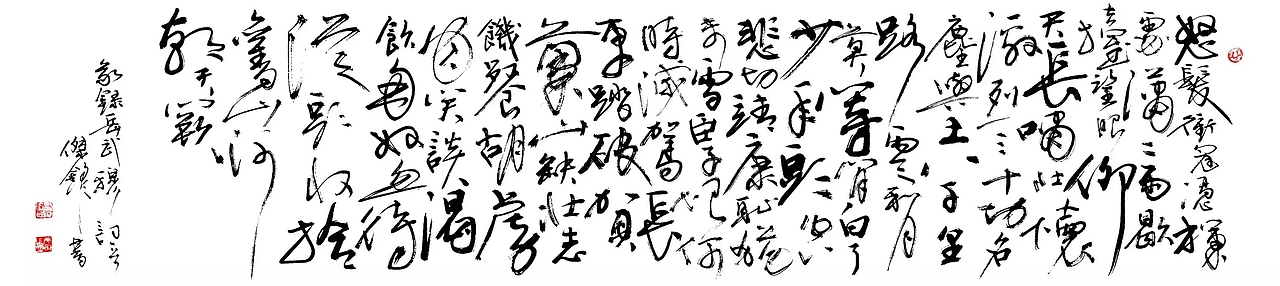 怒髮衝冠憑欄
處瀟瀟雨歇
擡望眼仰
天長嘯壯懷
激烈三十功名
塵與土八千里
路雲和月
莫等閒白了
少年頭空
悲切靖康恥猶
未雪臣子恨何
時滅駕長
車踏破賀
蘭山缺壯志
饑餐胡虜
肉笑談渴
飲匈奴血待
從頭收拾
舊山河
朝天闕
敬錄岳武穆詞
傑 書